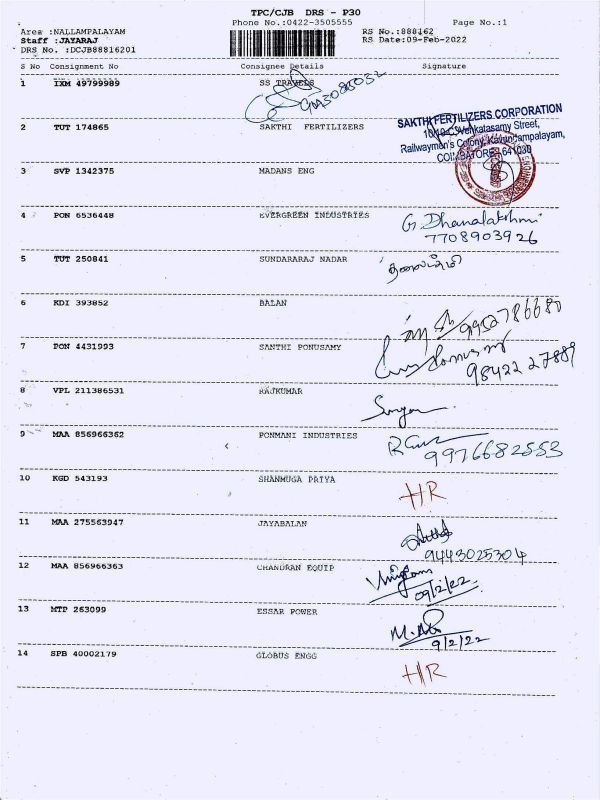 TPC/CJB DRS - P30
Phone No.:0422-3505555 Page No.:1
Area :NALLAMPALAYAM RS No.:888162
Staff :JAYARAJ RS Date:09-Feb-2022
DRS No. :DCJB88816201
S No Consignment No Consignee Details Signature
1 IXM 49799989 SS TRAVELS
2 TUT 174865 SAKTHI FERTILIZERS
SAKTHI FERTILIZERS CORPORATION
Venkatasamy Street,
Railwaymen's Colony,
COIMBATORE - 641030
3 SVP 1342375 MADANS ENG
4 PON 6536448 EVERGREEN INDUSTRIES G. Dhanalakshmi
7708903926
5 TUT 250841 SUNDARARAJ NADAR
6 KDI 393852 BALAN 9952786680
7 PON 4431993 SANTHI PONUSAMY
98422 27889
8 VPL 211386531 RAJKUMAR
9 MAA 856966362 PONMANI INDUSTRIES
9976682553
10 KGD 543193 SHANMUGA PRIYA HR
11 MAA 275563947 JAYABALAN
9443025304
12 MAA 856966363 CHANDRAN EQUIP
09/2/22
13 MTP 263099 ESSAR POWER
9/2/22
14 SPB 40002179 GLOBUS ENGG HR